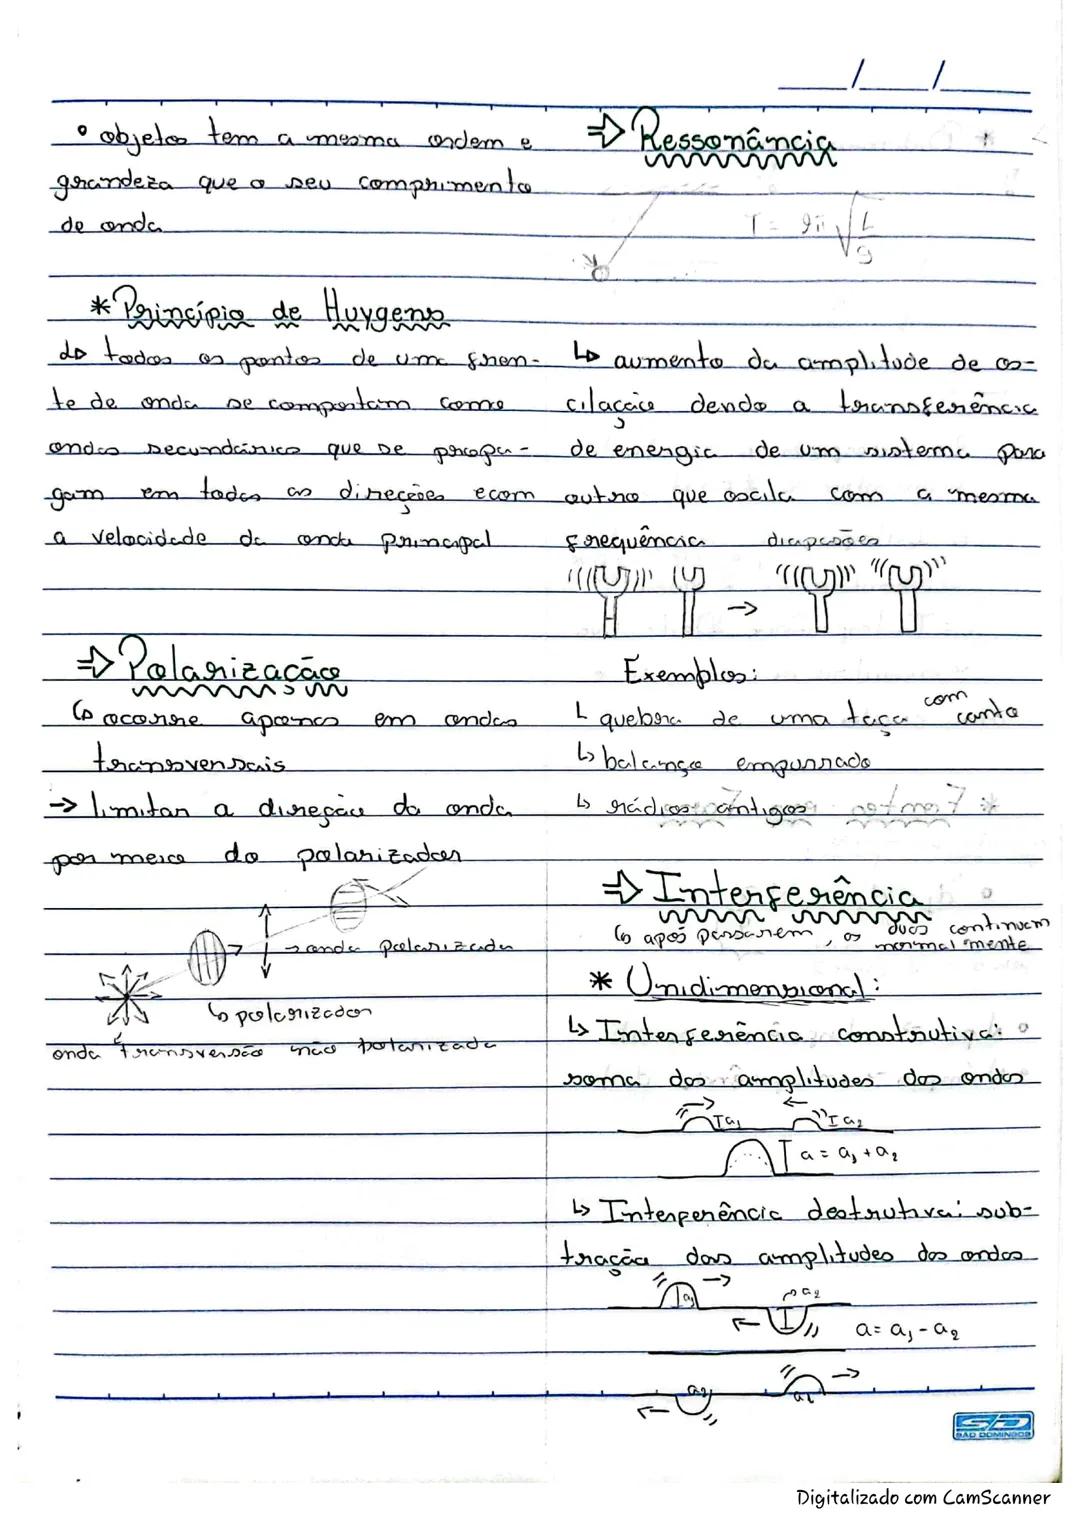 __/__/__
• objetos tem a mesma ordem e
grandeza que o seu comprimento
de onda
* Princípio de Huygens
↳ todos os pontos de uma fren-
te de onda se comportam como
ondas secundárias que se propa-
gam em todas as direções e com
a velocidade da onda principal
⇒ Polarização
↳ ocorre apenas em ondas
transversais
→ limitar a direção da onda
por meio do polarizador
→ onda polarizada
↳ polarizador
onda transversão não polarizada
⇒ Ressonância
T = 2π √L/g
↳ aumento da amplitude de os-
cilação devdo a transferência
de energia de um sistema para
outro que oscila com a mesma
frequência diapasões
→
Exemplos:
↳ quebra de uma taça com canto
↳ balanço empurrado
↳ rádios antigos
⇒ Interferência
↳ após passarem, as duas continuam
normalmente
* Unidimensional:
↳ Interferência construtiva:
soma das amplitudes das ondas
a₁ a₂
a = a₁ + a₂
↳ Interferência destrutiva: sub-
tração das amplitudes das ondas
a₁ a₂
a = a₁ - a₂
a₂ a₁
SD
SÃO DOMINGOS
Digitalizado com CamScanner